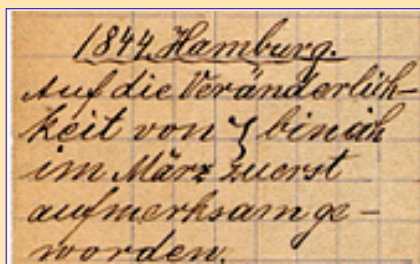 1844. Hamburg.
Auf die Veränderlich-
keit von ζ bin ich
im März zuerst
aufmerksam ge-
worden.